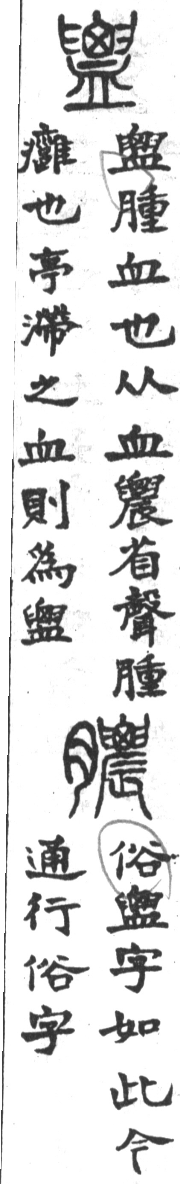 𧗕
𧗕腫血也从血農省聲腫
癰也亭滯之血則為𧗕
膿
俗𧗕字如此今
通行俗字